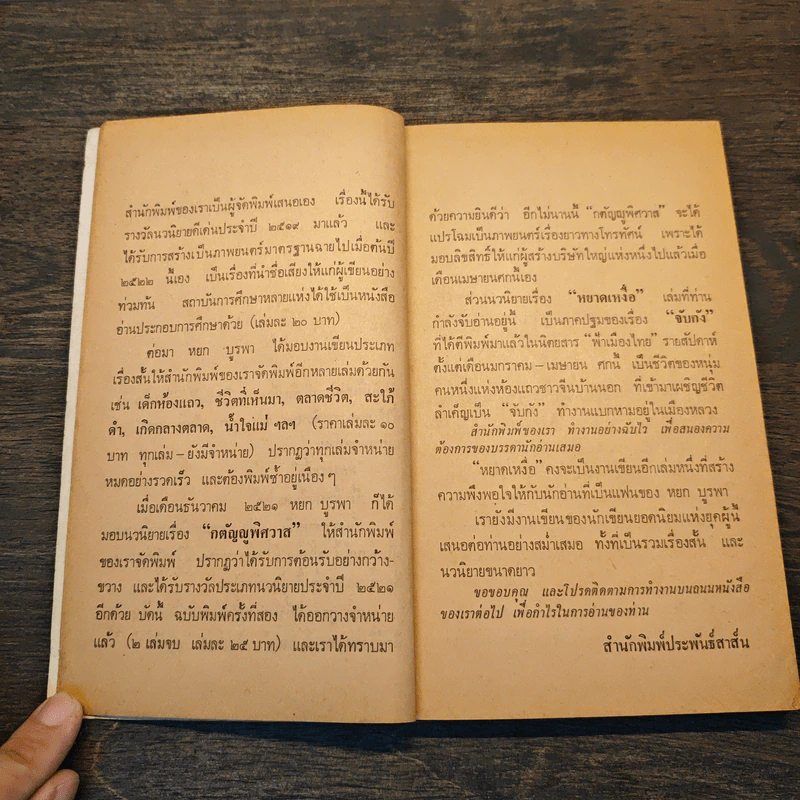 สำนักพิมพ์ของเราเป็นผู้จัดพิมพ์เสนอเอง เรื่องนี้ได้รับ
รางวัลนวนิยายดีเด่นประจำปี ๒๕๑๙ มาแล้ว และ
ได้รับการสร้างเป็นภาพยนตร์มาตรฐานฉายไปเมื่อต้นปี
๒๕๒๒ นี้เอง เป็นเรื่องที่นำชื่อเสียงให้แก่ผู้เขียนอย่าง
ท่วมท้น สถาบันการศึกษาหลายแห่งได้ใช้เป็นหนังสือ
อ่านประกอบการศึกษาด้วย (เล่มละ ๒๐ บาท)
ต่อมา หยก บูรพา ได้มอบงานเขียนประเภท
เรื่องสั้นให้สำนักพิมพ์ของเราจัดพิมพ์อีกหลายเล่มด้วยกัน
เช่น เด็กห้องแถว, ชีวิตที่เห็นมา, ตลาดชีวิต, สะใภ้
ดำ, เกิดกลางตลาด, น้ำใจแม่ ฯลฯ (ราคาเล่มละ ๑๐
บาท ทุกเล่ม – ยังมีจำหน่าย) ปรากฏว่าทุกเล่มจำหน่าย
หมดอย่างรวดเร็ว และต้องพิมพ์ซ้ำอยู่เนืองๆ
เมื่อเดือนธันวาคม ๒๕๒๑ หยก บูรพา ก็ได้
มอบนวนิยายเรื่อง “กตัญญูพิศวาส” ให้สำนักพิมพ์
ของเราจัดพิมพ์ ปรากฏว่าได้รับการต้อนรับอย่างกว้าง-
ขวาง และได้รับรางวัลประเภทนวนิยายประจำปี ๒๕๒๑
อีกด้วย บัดนี้ ฉบับพิมพ์ครั้งที่สอง ได้ออกวางจำหน่าย
แล้ว (๒ เล่มจบ เล่มละ ๒๕ บาท) และเราได้ทราบมา
ด้วยความยินดีว่า อีกไม่นานนี้ “กตัญญูพิศวาส” จะได้
แปรโฉมเป็นภาพยนตร์เรื่องยาวทางโทรทัศน์ เพราะได้
มอบลิขสิทธิ์ให้แก่ผู้สร้างบริษัทใหญ่แห่งหนึ่งไปแล้วเมื่อ
เดือนเมษายนศกนี้เอง
ส่วนนวนิยายเรื่อง “หยาดเหงื่อ” เล่มที่ท่าน
กำลังจับอ่านอยู่นี้ เป็นภาคปฐมของเรื่อง “จับกัง”
ที่ได้ตีพิมพ์มาแล้วในนิตยสาร “ฟ้าเมืองไทย” รายสัปดาห์
ตั้งแต่เดือนมกราคม – เมษายน ศกนี้ เป็นชีวิตของหนุ่ม
คนหนึ่งแห่งห้องแถวชาวจีนบ้านนอก ที่เข้ามาเผชิญชีวิต
ลำเค็ญเป็น “จับกัง” ทำงานแบกหามอยู่ในเมืองหลวง
สำนักพิมพ์ของเรา ทำงานอย่างฉับไว เพื่อสนองความ
ต้องการของบรรดานักอ่านเสมอ
“หยาดเหงื่อ” คงจะเป็นงานเขียนอีกเล่มหนึ่งที่สร้าง
ความพึงพอใจให้กับนักอ่านที่เป็นแฟนของ หยก บูรพา
เรายังมีงานเขียนของนักเขียนยอดนิยมแห่งยุคผู้นี้
เสนอต่อท่านอย่างสม่ำเสมอ ทั้งที่เป็นรวมเรื่องสั้น และ
นวนิยายขนาดยาว
ขอขอบคุณ และโปรดติดตามการทำงานบนถนนหนังสือ
ของเราต่อไป เพื่อกำไรในการอ่านของท่าน
สำนักพิมพ์ประพันธ์สาส์น